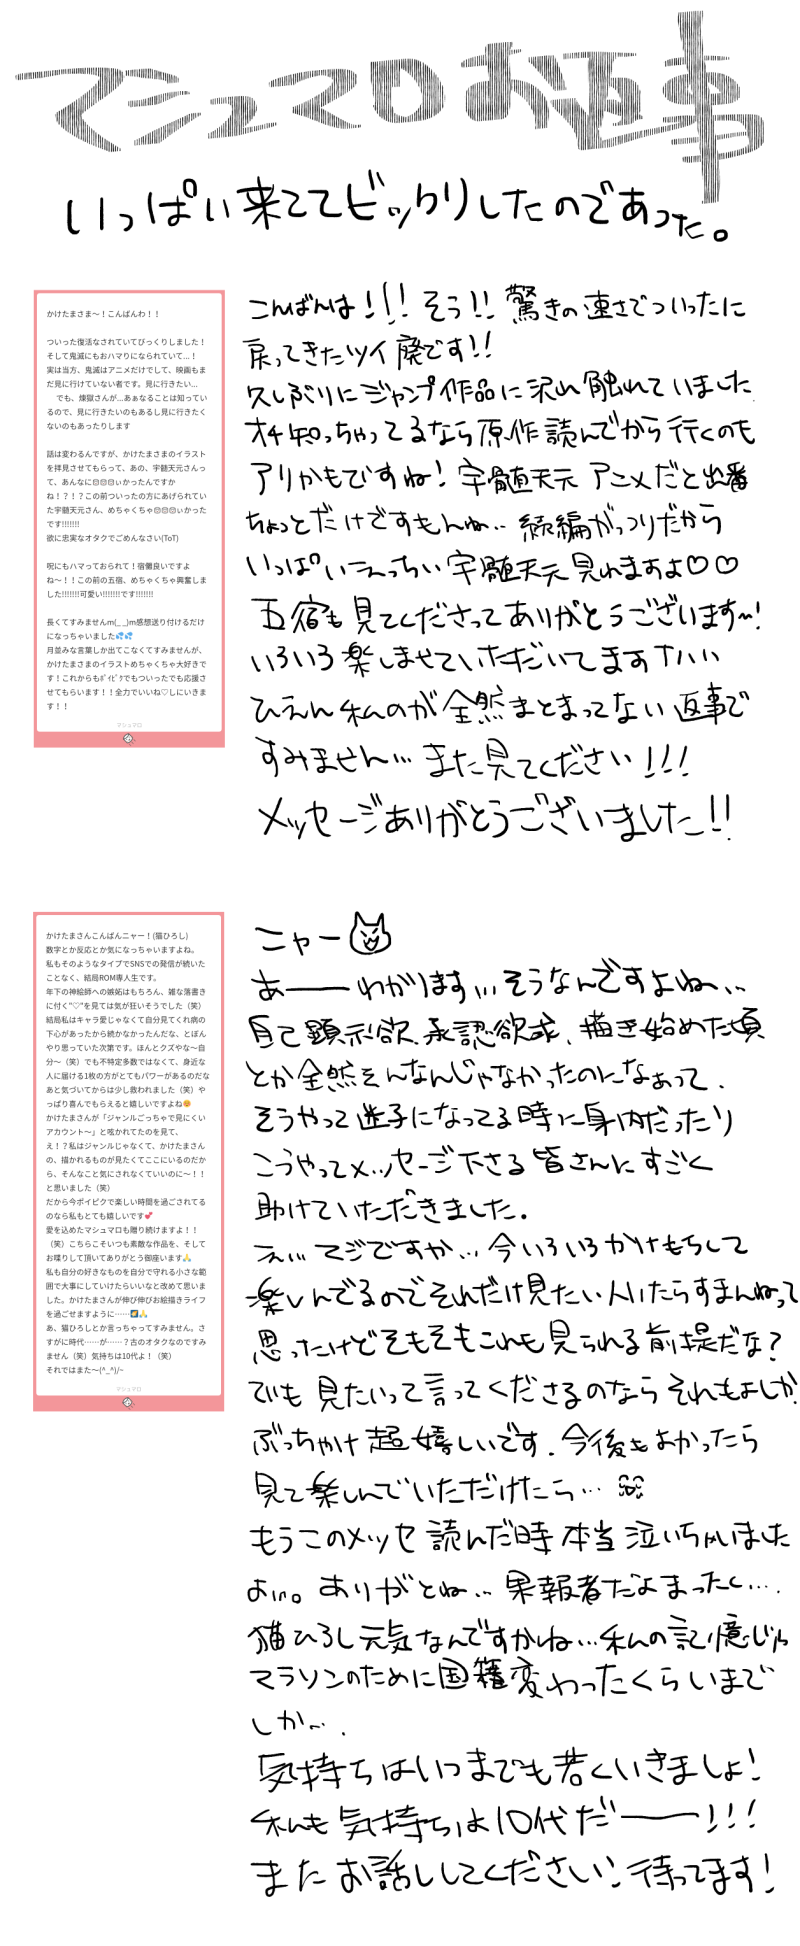 マシュマロお返事
いっぱい来ててビックリしたのであった。
かけたまさま〜！こんばんわ！！
ついった復活なされていてびっくりしました！
そして鬼滅にもおハマりになられていて...！
実は当方、鬼滅はアニメだけでして、映画もま
だ見に行けていない者です。見に行きたい...
でも、煉獄さんが...あぁなることは知ってい
るので、見に行きたいのもあるし見に行きたく
ないのもあったりします
話は変わるんですが、かけたまさまのイラスト
を拝見させてもらって、あの、宇髄天元さんっ
て、あんなに😍😍😍ぃかったんですか
ね！？！？この前ついったの方にあげられてい
た宇髄天元さん、めちゃくちゃ😍😍😍ぃかった
です!!!!!!!
欲に忠実なオタクでごめんなさい(ToT)
呪にもハマっておられて！宿儺良いですよ
ね〜！！この前の五宿、めちゃくちゃ興奮しま
した!!!!!!!可愛い!!!!!!!です!!!!!!!
長くてすみませんm(_ _)m感想送り付けるだけ
になっちゃいました💦💦
月並みな言葉しか出てこなくてすみませんが、
かけたまさまのイラストめちゃくちゃ大好きで
す！これからもﾎﾟｲﾋﾟｸでもついったでも応援さ
せてもらいます！！全力でいいね♡しにいきま
す！！
マシュマロ
こんばんは！！！そう！！驚きの速さでついったに
戻ってきたツイ廃です！！
久しぶりにジャンプ作品に沢山触れていました
オチ知っちゃってるなら原作読んでから行くのも
アリかもですね！宇髄天元 アニメだと出番
ちょっとだけですもんね… 続編がっつりだから
いっぱいえっちい宇髄天元見れますよ♡♡
五宿も見てくださってありがとうございます〜！
いろいろ楽しませていただいてますナハハ
ひえん私のが全然まとまってない返事で
すみません… また見てください！！！
メッセージありがとうございました！！
かけたまさんこんばんニャー！(猫ひろし)
数字とか反応とか気になっちゃいますよね。
私もそのようなタイプでSNSでの発信が続いた
ことなく、結局ROM専人生です。
年下の神絵師への嫉妬はもちろん、雑な落書き
に付く"♡"を見ては気が狂いそうでした（笑）
結局私はキャラ愛じゃなくて自分見てくれ病の
下心があったから続かなかったんだな、とぼん
やり思っていた次第です。ほんとクズやな〜自
分〜（笑）でも不特定多数ではなくて、身近な
人に届ける1枚の方がとてもパワーがあるのだな
あと気づいてからは少し救われました（笑）や
っぱり喜んでもらえると嬉しいですよね😊
かけたまさんが「ジャンルごっちゃで見にくい
アカウント〜」と呟かれてたのを見て、
え！？私はジャンルじゃなくて、かけたまさん
の、描かれるものが見たくてここにいるのだか
ら、そんなこと気にされなくていいのに〜！！
と思いました（笑）
だから今ポイピクで楽しい時間を過ごされてる
のなら私もとても嬉しいです💕
愛を込めたマシュマロも贈り続けますよ！！
（笑）こちらこそいつも素敵な作品を、そして
お喋りして頂いてありがとう御座います🙏
私も自分の好きなものを自分で守れる小さな範
囲で大事にしていけたらいいなと改めて思いま
した。かけたまさんが伸び伸びお絵描きライフ
を過ごせますように……🌠🙏
あ、猫ひろしとか言っちゃってすみません。さ
すがに時代……が……？古のオタクなのですみ
ません（笑）気持ちは10代よ！（笑）
それではまた〜(^_^)/~
マシュマロ
ニャー
あーーわかります…そうなんですよね〜…
自己顕示欲、承認欲求、描き始めた頃
とか全然そんなんじゃなかったのになぁって、
そうやって迷子になってる時に身内だったり
こうやってメッセージ下さる皆さんにすごく
助けていただきました。
えぃ… マジですか… 今いろいろかけもちして
楽しんでるのでそれだけ見たい人いたらすまんねって
思ったけどそもそもこれも見られる前提だな？
でも見たいって言ってくださるのなら それもよしか、
ぶっちゃけ超嬉しいです、今後もよかったら
見て楽しんでいただけたら…
もうこのメッセ読んだ時本当泣いちゃいました
よぃ…。ありがとね… 果報者だよまったく…、
猫ひろし元気なんですかね…私の記憶じゃ
マラソンのために国籍変わったくらいまで
しか…、
気持ちはいつまでも若くいきましょ！
私も気持ちは10代だーー！！！
またお話ししてください！待ってます！